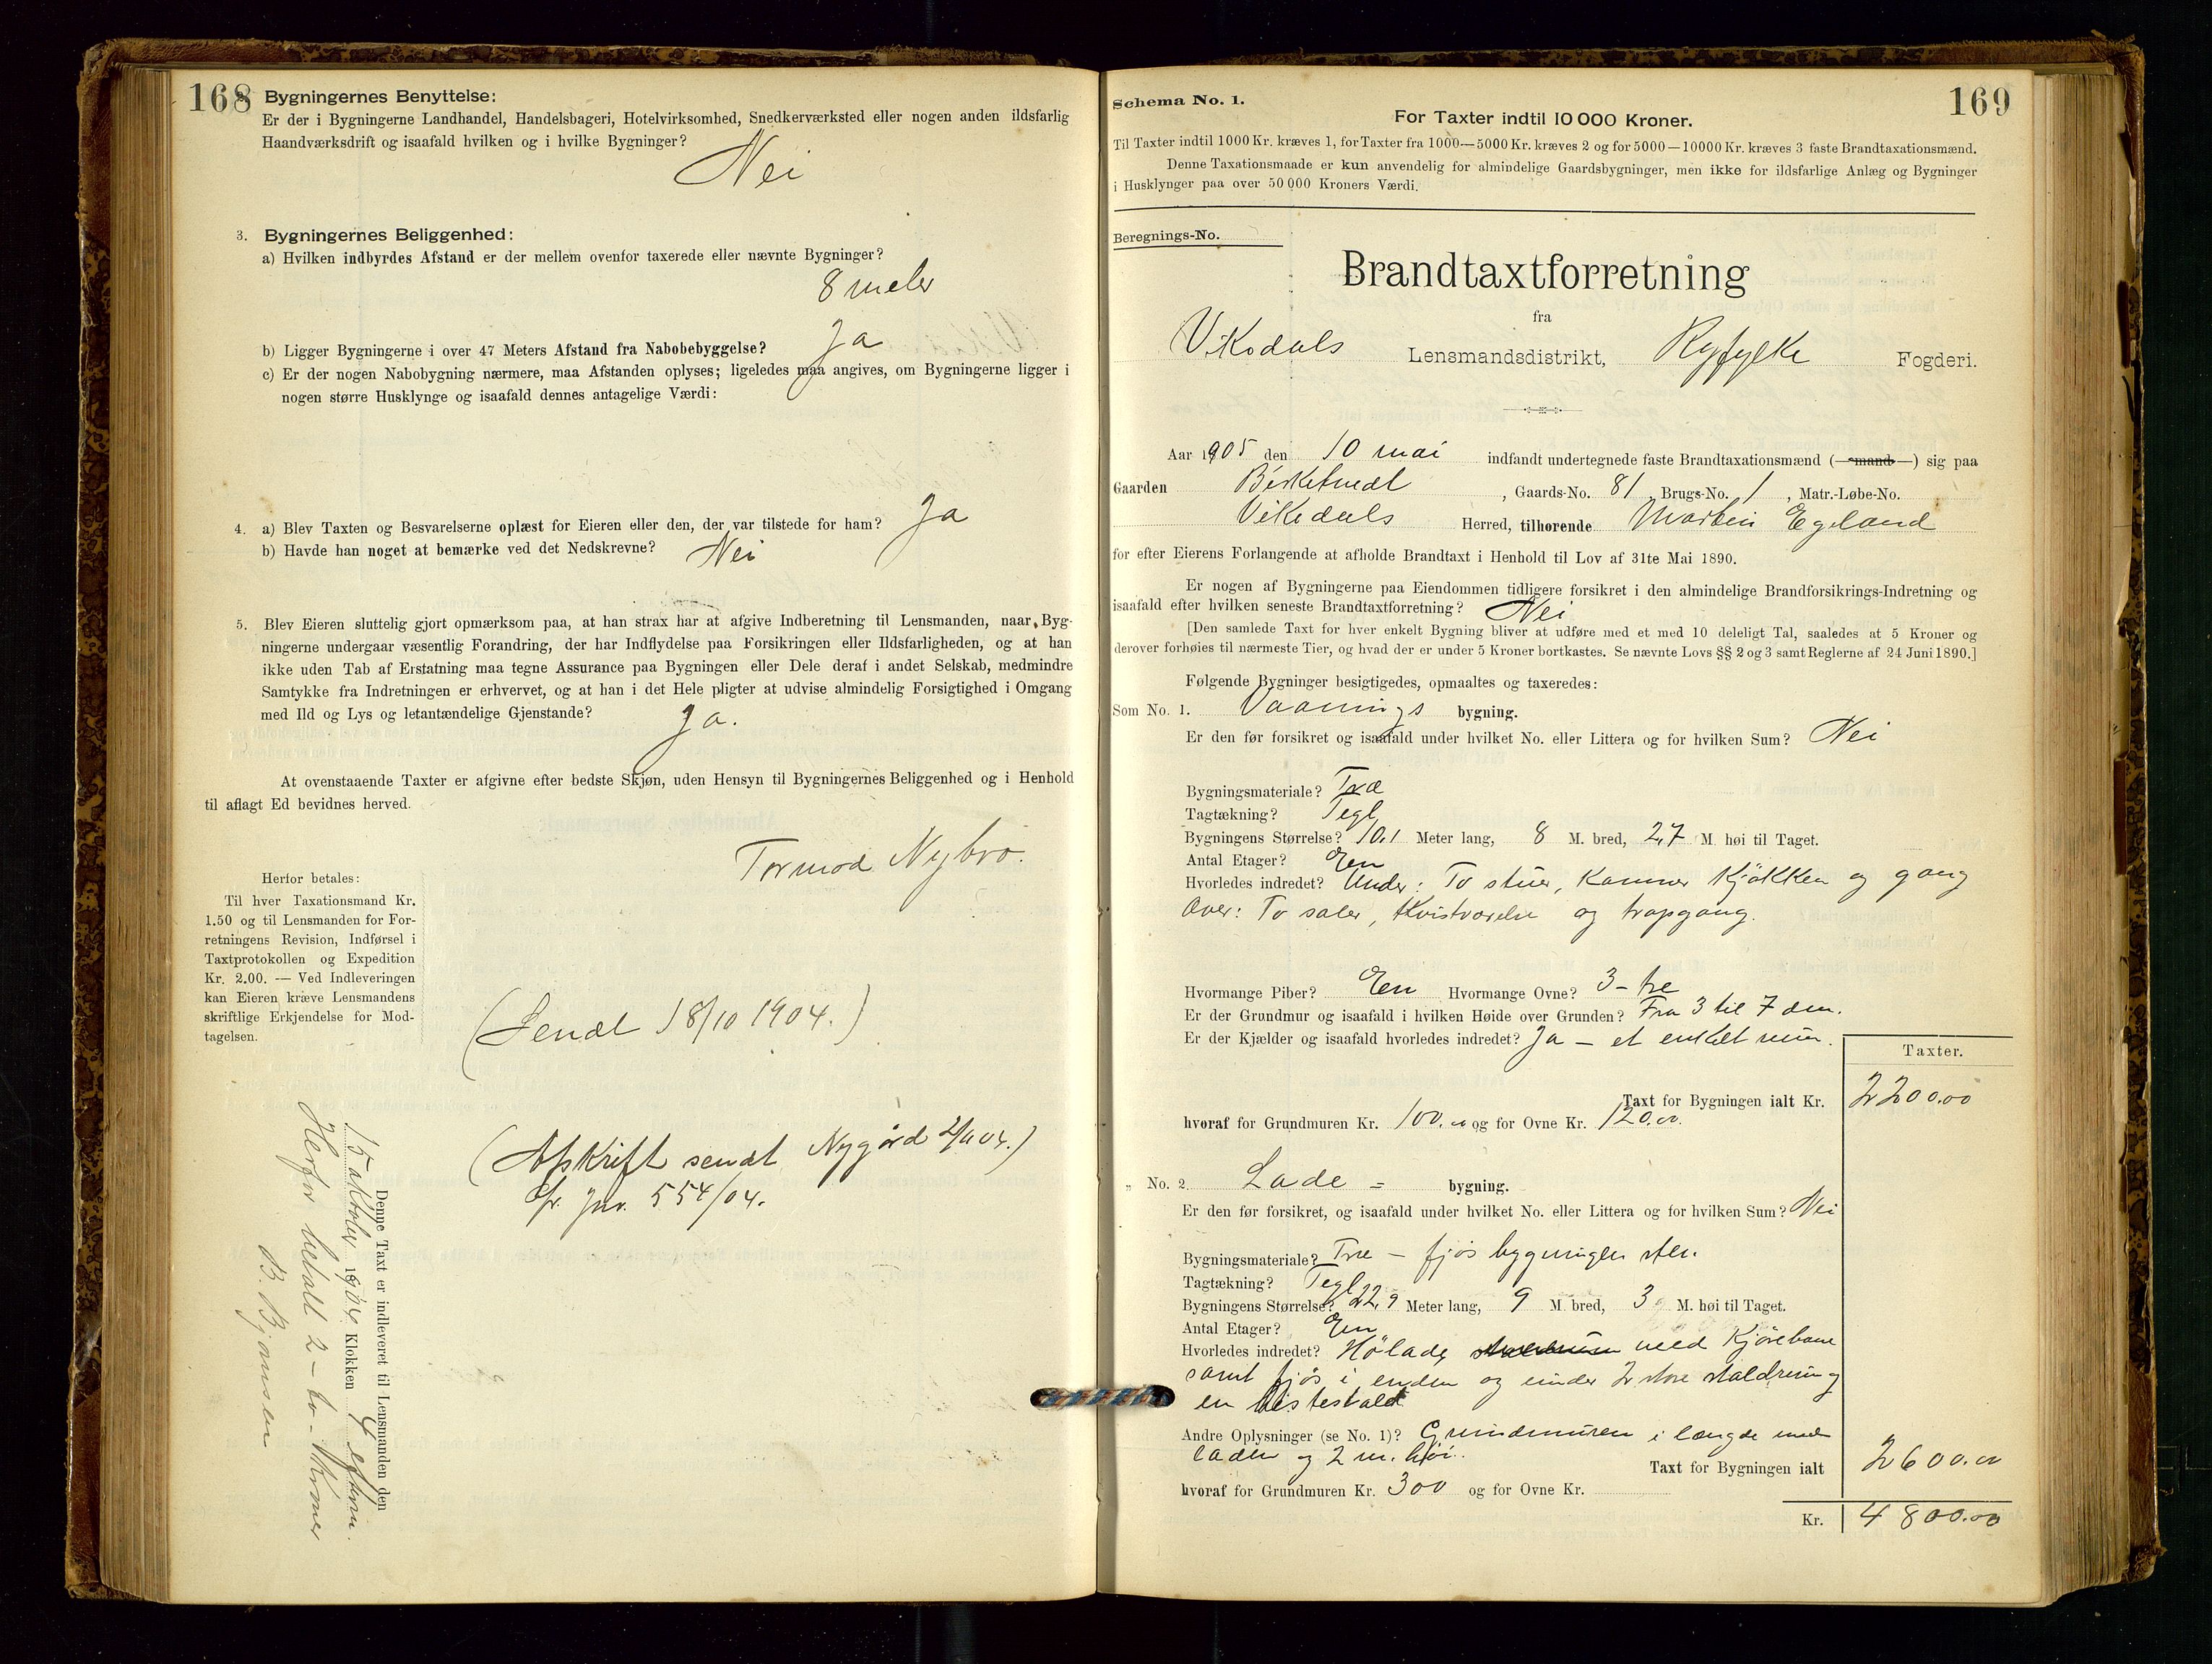 168
Bygningernes Benyttelse:
Er der i Bygningerne Landhandel, Handelsbageri, Hotelvirksomhed, Snedkerværksted eller nogen anden ildsfarlig
Haandværksdrift og isaafald hvilken og i hvilke Bygninger?
Nei
3. Bygningernes Beliggenhed:
a) Hvilken indbyrdes Afstand er der mellem ovenfor taxerede eller nævnte Bygninger?
8 meter
b) Ligger Bygningerne i over 47 Meters Afstand fra Nabobebyggelse? Ja
c) Er der nogen Nabobygning nærmere, maa Afstanden oplyses; ligeledes maa angives, om Bygningerne ligger i
nogen større Husklynge og isaafald dennes antagelige Værdi:
4. a) Blev Taxten og Besvarelserne oplæst for Eieren eller den, der var tilstede for ham? Ja
b) Havde han noget at bemærke ved det Nedskrevne? Nei
5. Blev Eieren sluttelig gjort opmærksom paa, at han strax har at afgive Indberetning til Lensmanden, naar Byg-
ningerne undergaar væsentlig Forandring, der har Indflydelse paa Forsikringen eller Ildsfarligheden, og at han
ikke uden Tab af Erstatning maa tegne Assurance paa Bygningen eller Dele deraf i andet Selskab, medmindre
Samtykke fra Indretningen er erhvervet, og at han i det Hele pligter at udvise almindelig Forsigtighed i Omgang
med Ild og Lys og letantændelige Gjenstande? Ja.
At ovenstaaende Taxter er afgivne efter bedste Skjøn, uden Hensyn til Bygningernes Beliggenhed og i Henhold
til aflagt Ed bevidnes herved.
Tormod Nybrø.
Herfor betales:
Til hver Taxationsmand Kr.
1.50 og til Lensmanden for For-
retningens Revision, Indførsel i
Taxtprotokollen og Expedition
Kr. 2.00. — Ved Indleveringen
kan Eieren kræve Lensmandens
skriftlige Erkjendelse for Mod-
tagelsen.
(Sendt 18/10 1904.)
(Afskrift sendt Nygård 2/11 04.)
Cfr. Jnr. 554/04.
Denne Taxt er indleveret til Lensmanden den
15 oktober 1904 Klokken 4 efterm.
Herfor betalt 2 - to - Kroner
B. Bjørnsen
169
Schema No. 1.
For Taxter indtil 10 000 Kroner.
Til Taxter indtil 1000 Kr. kræves 1, for Taxter fra 1000—5000 Kr. kræves 2 og for 5000—10000 Kr. kræves 3 faste Brandtaxationsmænd.
Denne Taxationsmaade er kun anvendelig for almindelige Gaardsbygninger, men ikke for ildsfarlige Anlæg og Bygninger
i Husklynger paa over 50 000 Kroners Værdi.
Beregnings-No.
Brandtaxtforretning
fra
Vikedals Lensmandsdistrikt, Ryfylke Fogderi.
Aar 1905 den 10 mai indfandt undertegnede faste Brandtaxationsmænd (—mand—) sig paa
Gaarden Birketvedt, Gaards-No. 81 Brugs-No. 1, Matr.-Løbe-No.
Vikedals Herred, tilhørende Martin Egeland
for efter Eierens Forlangende at afholde Brandtaxt i Henhold til Lov af 31te Mai 1890.
Er nogen af Bygningerne paa Eiendommen tidligere forsikret i den almindelige Brandforsikrings-Indretning og
isaafald efter hvilken seneste Brandtaxtforretning? Nei
[Den samlede Taxt for hver enkelt Bygning bliver at udføre med et med 10 deleligt Tal, saaledes at 5 Kroner og
derover forhøies til nærmeste Tier, og hvad der er under 5 Kroner bortkastes. Se nævnte Lovs §§ 2 og 3 samt Reglerne af 24 Juni 1890.]
Følgende Bygninger besigtigedes, opmaaltes og taxeredes:
Som No. 1. Vaanings bygning.
Er den før forsikret og isaafald under hvilket No. eller Littera og for hvilken Sum? Nei
Bygningsmateriale? Træ
Tagtækning? Tegl
Bygningens Størrelse? 10,1 Meter lang, 8 M. bred, 2,7 M høi til Taget.
Antal Etager? Een
Hvorledes indredet? Under: To stuer, Kammer Kjøkken og gang
Over: To saler, Kvistværelse og trapgang.
Hvormange Piber? Een Hvormange Ovne? 3 - tre
Er der Grundmur og isaafald i hvilken Høide over Grunden? Fra 3 til 7 dm.
Er der Kjælder og isaafald hvorledes indredet? Ja - et enkelt rum.
Taxter.
Taxt for Bygningen ialt Kr. 2200.00
hvoraf for Grundmuren Kr. 100.00 og for Ovne Kr. 120.00.
„ No. 2. Lade = bygning.
Er den før forsikret, og isaafald under hvilket No. eller Littera og for hvilken Sum? Nei
Bygningsmateriale? Træ - fjøs bygningen sten.
Tagtækning? Tegl
Bygningens Størrelse? 22,9 Meter lang, 9 M. bred, 3 M. høi til Taget.
Antal Etager? Een
Hvorledes indredet? Hølade med Kjørebane
samt fjøs i enden og under 2 store staldrum og
en hestestald
Andre Oplysninger (se No. 1)? Grundmuren i længde med
laden og 2 m. høi.
Taxt for Bygningen ialt 2600.00
hvoraf for Grundmuren Kr. 300 og for Ovne Kr.
Kr. 4800.00